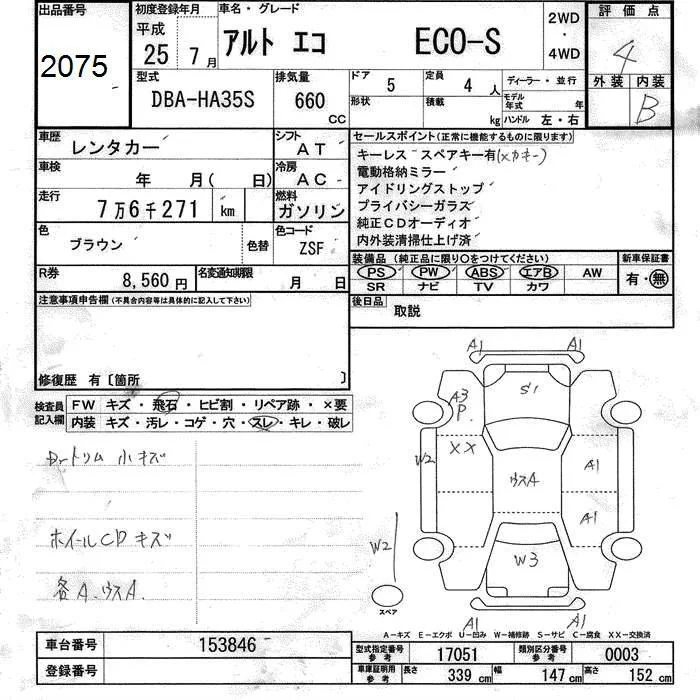 出品番号 初度登録年月 車名・グレード 評価点
2075 平成 25年 7月 アルト エコ ECO-S 2WD・4WD 4
型式 DBA-HA35S 排気量 660 CC ドア 5 定員 4 人 ディーラー・並行 外装 内装 B
形状 積載 kg モデル年式 年 ハンドル 左・右
車歴 レンタカー シフト AT
車検 年 月( 日) 冷房 AC
走行 7万6千271 km 燃料 ガソリン
色 ブラウン 色替 色コード ZSF
R券 8,560円 名変通知期限 月 日
セールスポイント(正常に機能するものに限ります)
キーレス スペアキー有(×カキー)
電動格納ミラー
アイドリングストップ
プライバシーガラス
純正CDオーディオ
内外装清掃仕上げ済
装備品(純正品に限り○をつけてください) 新車保証書
PS PW ABS エアB AW 有・無
SR ナビ TV カワ
後日品 取説
注意事項申告欄(不具合内容等は具体的に記入して下さい)
修復歴 有〔箇所 〕
検査員記入欄 FW キズ・飛石・ヒビ割・リペア跡・×要
内装 キズ・汚レ・コゲ・穴・スレ・キレ・破レ
Drトリム 小キズ
ホイールCPキズ
各A.ウスA.
A1 A1
S1
A3
P.
XX
W2
ウスA
A1
A1
W2
W3
スペア
A1 A1
A-キズ E-エクボ U-凹み W-補修跡 S-サビ C-腐食 XX-交換済
車台番号 153846
登録番号
型式指定番号 参考 17051 類別区分番号 参考 0003
車庫証明用 参考 長さ 339 cm 幅 147 cm 高さ 152 cm